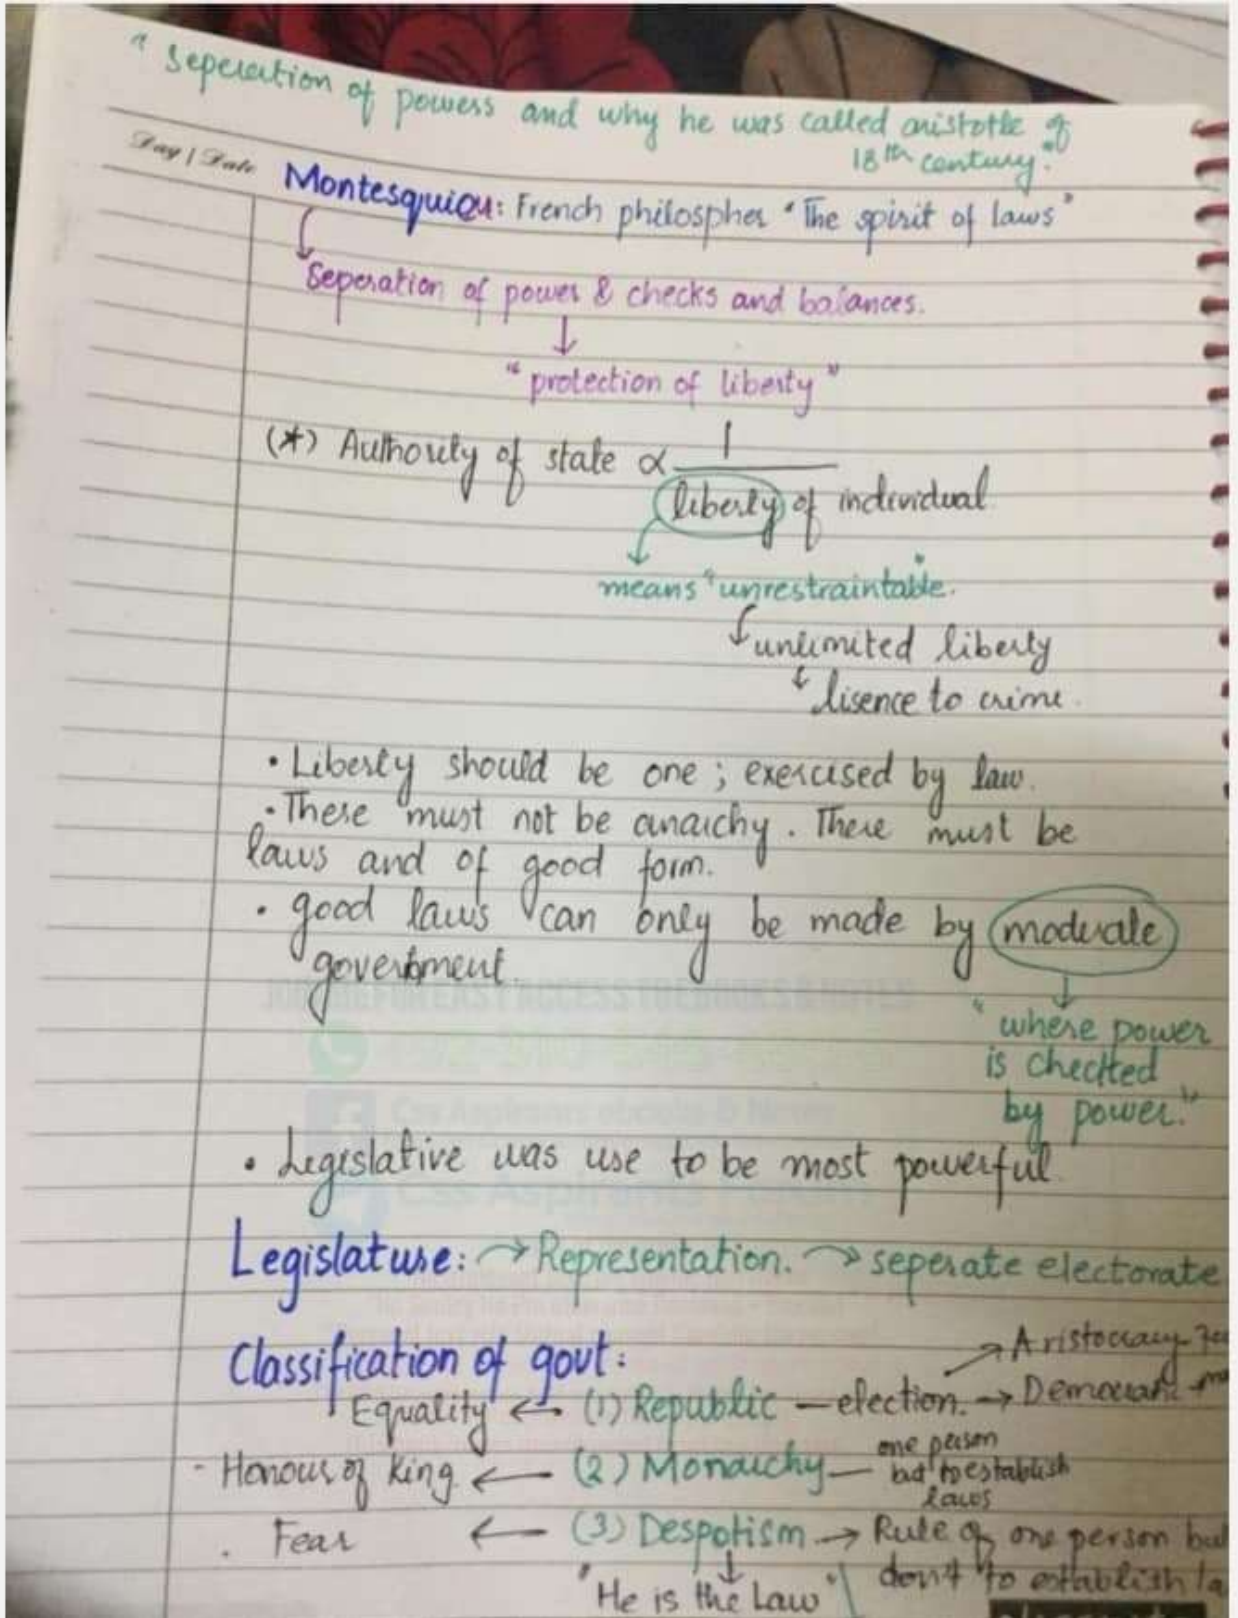 " Seperation of powers and why he was called aristotle of
18th century."
Day | Date
Montesquieu: French philospher "The spirit of laws"
Seperation of power & checks and balances.
↓
"protection of liberty"
(*) Authority of state ∝ 1
liberty of individual
means "unrestraintable."
unlimited liberty
lisence to crime.
• Liberty should be one ; exercised by law.
• There must not be anarchy. There must be
laws and of good form.
• good laws can only be made by moderate
government.
↓
"where power
is checked
by power."
JOIN
Css Aspirants ebooks & Notes
Css Aspirants
• Legislative was use to be most powerful.
Legislature: → Representation. → seperate electorate
Classification of govt:
Aristocracy
Equality ← (1) Republic — election. → Democratic
one person
Honour of King ← (2) Monarchy — but to establish
laws
Fear ← (3) Despotism → Rule of one person but
↓ don't to establish la
"He is the Law"